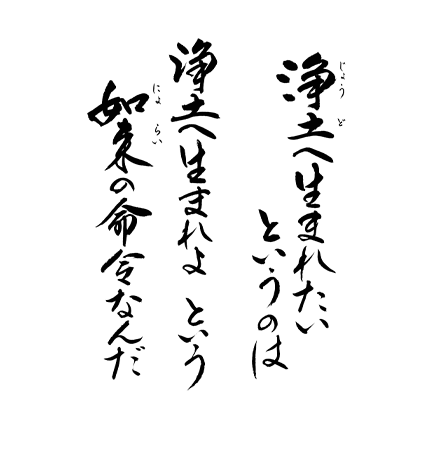 浄土へ生まれたい
というのは
浄土へ生まれよ という
如来の命令なんだ
じょうど
にょらい